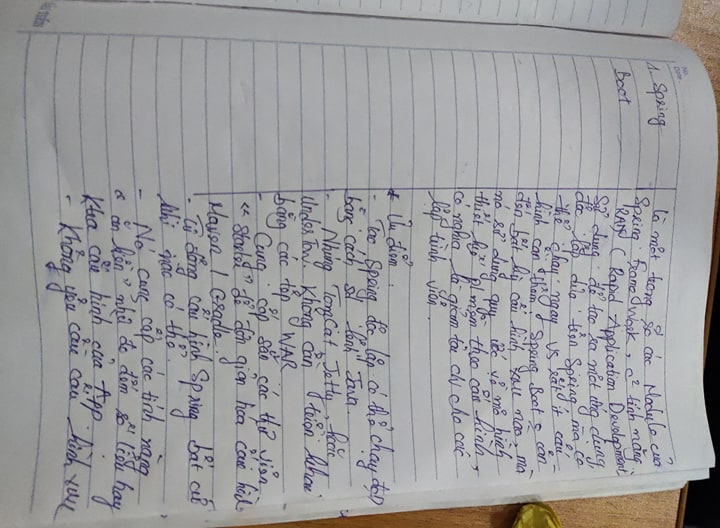 No.
Date
1. Spring
Boot
là một trong số các Module của
Spring FrameWork, có tính năng
RAD (Rapid Application Development)
Sử dụng để tạo ra một ứng dụng
độc lập dựa trên Spring mà có
thể chạy ngay vs rất ít cấu
hình cần thêm. Spring Boot ko cần
đến bất kỳ cấu hình XML nào, mà
nó sử dụng quy ước về mô hình
thiết kế pt mềm thay cấu hình,
có nghĩa là giảm tải chi cho các
lập trình viên.
* Ưu điểm.
- Tạo Spring độc lập có thể chạy đc
bằng cách sử lệnh Java.
- Nhúng TomCat, Jetty, hoặc
UnderTow. Không cần triển khai
bằng các tệp WAR
- Cung cấp sẵn các thư viện
"Starter" để đơn giản hóa cấu hình
Maven / Gradle.
- Tự động cấu hình Spring bất cứ
khi nào có thể.
- Nó cung cấp các tính năng
số liệu hay
hóa cấu hình của App.
- Không yêu cầu cấu hình XML